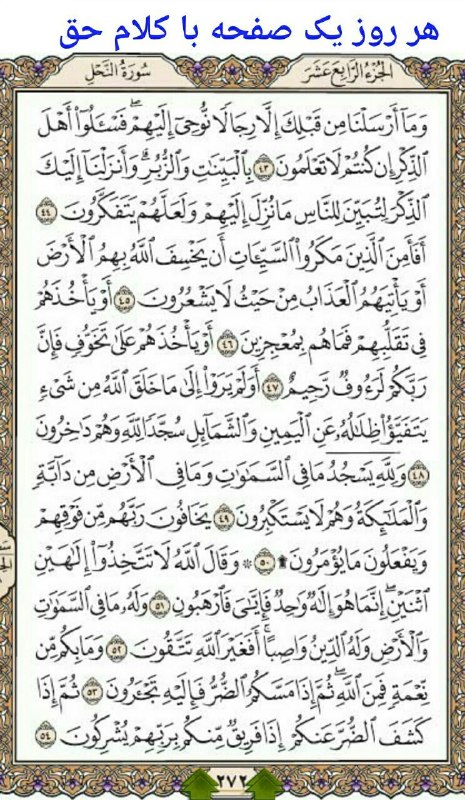 هر روز یک صفحه با کلام حق
الجُزءُ الرَّابِعَ عَشَرَ
سُورَةُ النَّحْلِ
وَمَآ أَرْسَلْنَا مِن قَبْلِكَ إِلَّا رِجَالًا نُّوحِىٓ إِلَيْهِمْ ۖ فَسْـَٔلُوٓا۟ أَهْلَ
ٱلذِّكْرِ إِن كُنتُمْ لَا تَعْلَمُونَ ٤٣ بِٱلْبَيِّنَـٰتِ وَٱلزُّبُرِ ۗ وَأَنزَلْنَآ إِلَيْكَ
ٱلذِّكْرَ لِتُبَيِّنَ لِلنَّاسِ مَا نُزِّلَ إِلَيْهِمْ وَلَعَلَّهُمْ يَتَفَكَّرُونَ ٤٤
أَفَأَمِنَ ٱلَّذِينَ مَكَرُوا۟ ٱلسَّيِّـَٔاتِ أَن يَخْسِفَ ٱللَّهُ بِهِمُ ٱلْأَرْضَ
أَوْ يَأْتِيَهُمُ ٱلْعَذَابُ مِنْ حَيْثُ لَا يَشْعُرُونَ ٤٥ أَوْ يَأْخُذَهُمْ
فِى تَقَلُّبِهِمْ فَمَا هُم بِمُعْجِزِينَ ٤٦ أَوْ يَأْخُذَهُمْ عَلَىٰ تَخَوُّفٍ فَإِنَّ
رَبَّكُمْ لَرَءُوفٌ رَّحِيمٌ ٤٧ أَوَلَمْ يَرَوْا۟ إِلَىٰ مَا خَلَقَ ٱللَّهُ مِن شَىْءٍ
يَتَفَيَّؤُا۟ ظِلَـٰلُهُۥ عَنِ ٱلْيَمِينِ وَٱلشَّمَآئِلِ سُجَّدًا لِّلَّهِ وَهُمْ دَٰخِرُونَ
٤٨ وَلِلَّهِ يَسْجُدُ مَا فِى ٱلسَّمَـٰوَٰتِ وَمَا فِى ٱلْأَرْضِ مِن دَآبَّةٍ
وَٱلْمَلَـٰٓئِكَةُ وَهُمْ لَا يَسْتَكْبِرُونَ ٤٩ يَخَافُونَ رَبَّهُم مِّن فَوْقِهِمْ
وَيَفْعَلُونَ مَا يُؤْمَرُونَ ۩ ٥٠ ۞ وَقَالَ ٱللَّهُ لَا تَتَّخِذُوٓا۟ إِلَـٰهَيْنِ
ٱثْنَيْنِ ۖ إِنَّمَا هُوَ إِلَـٰهٌ وَٰحِدٌ ۖ فَإِيَّـٰىَ فَٱرْهَبُونِ ٥١ وَلَهُۥ مَا فِى ٱلسَّمَـٰوَٰتِ
وَٱلْأَرْضِ وَلَهُ ٱلدِّينُ وَاصِبًا ۚ أَفَغَيْرَ ٱللَّهِ تَتَّقُونَ ٥٢ وَمَا بِكُم مِّن
نِّعْمَةٍ فَمِنَ ٱللَّهِ ۖ ثُمَّ إِذَا مَسَّكُمُ ٱلضُّرُّ فَإِلَيْهِ تَجْـَٔرُونَ ٥٣ ثُمَّ إِذَا
كَشَفَ ٱلضُّرَّ عَنكُمْ إِذَا فَرِيقٌ مِّنكُم بِرَبِّهِمْ يُشْرِكُونَ ٥٤
٢٧٢